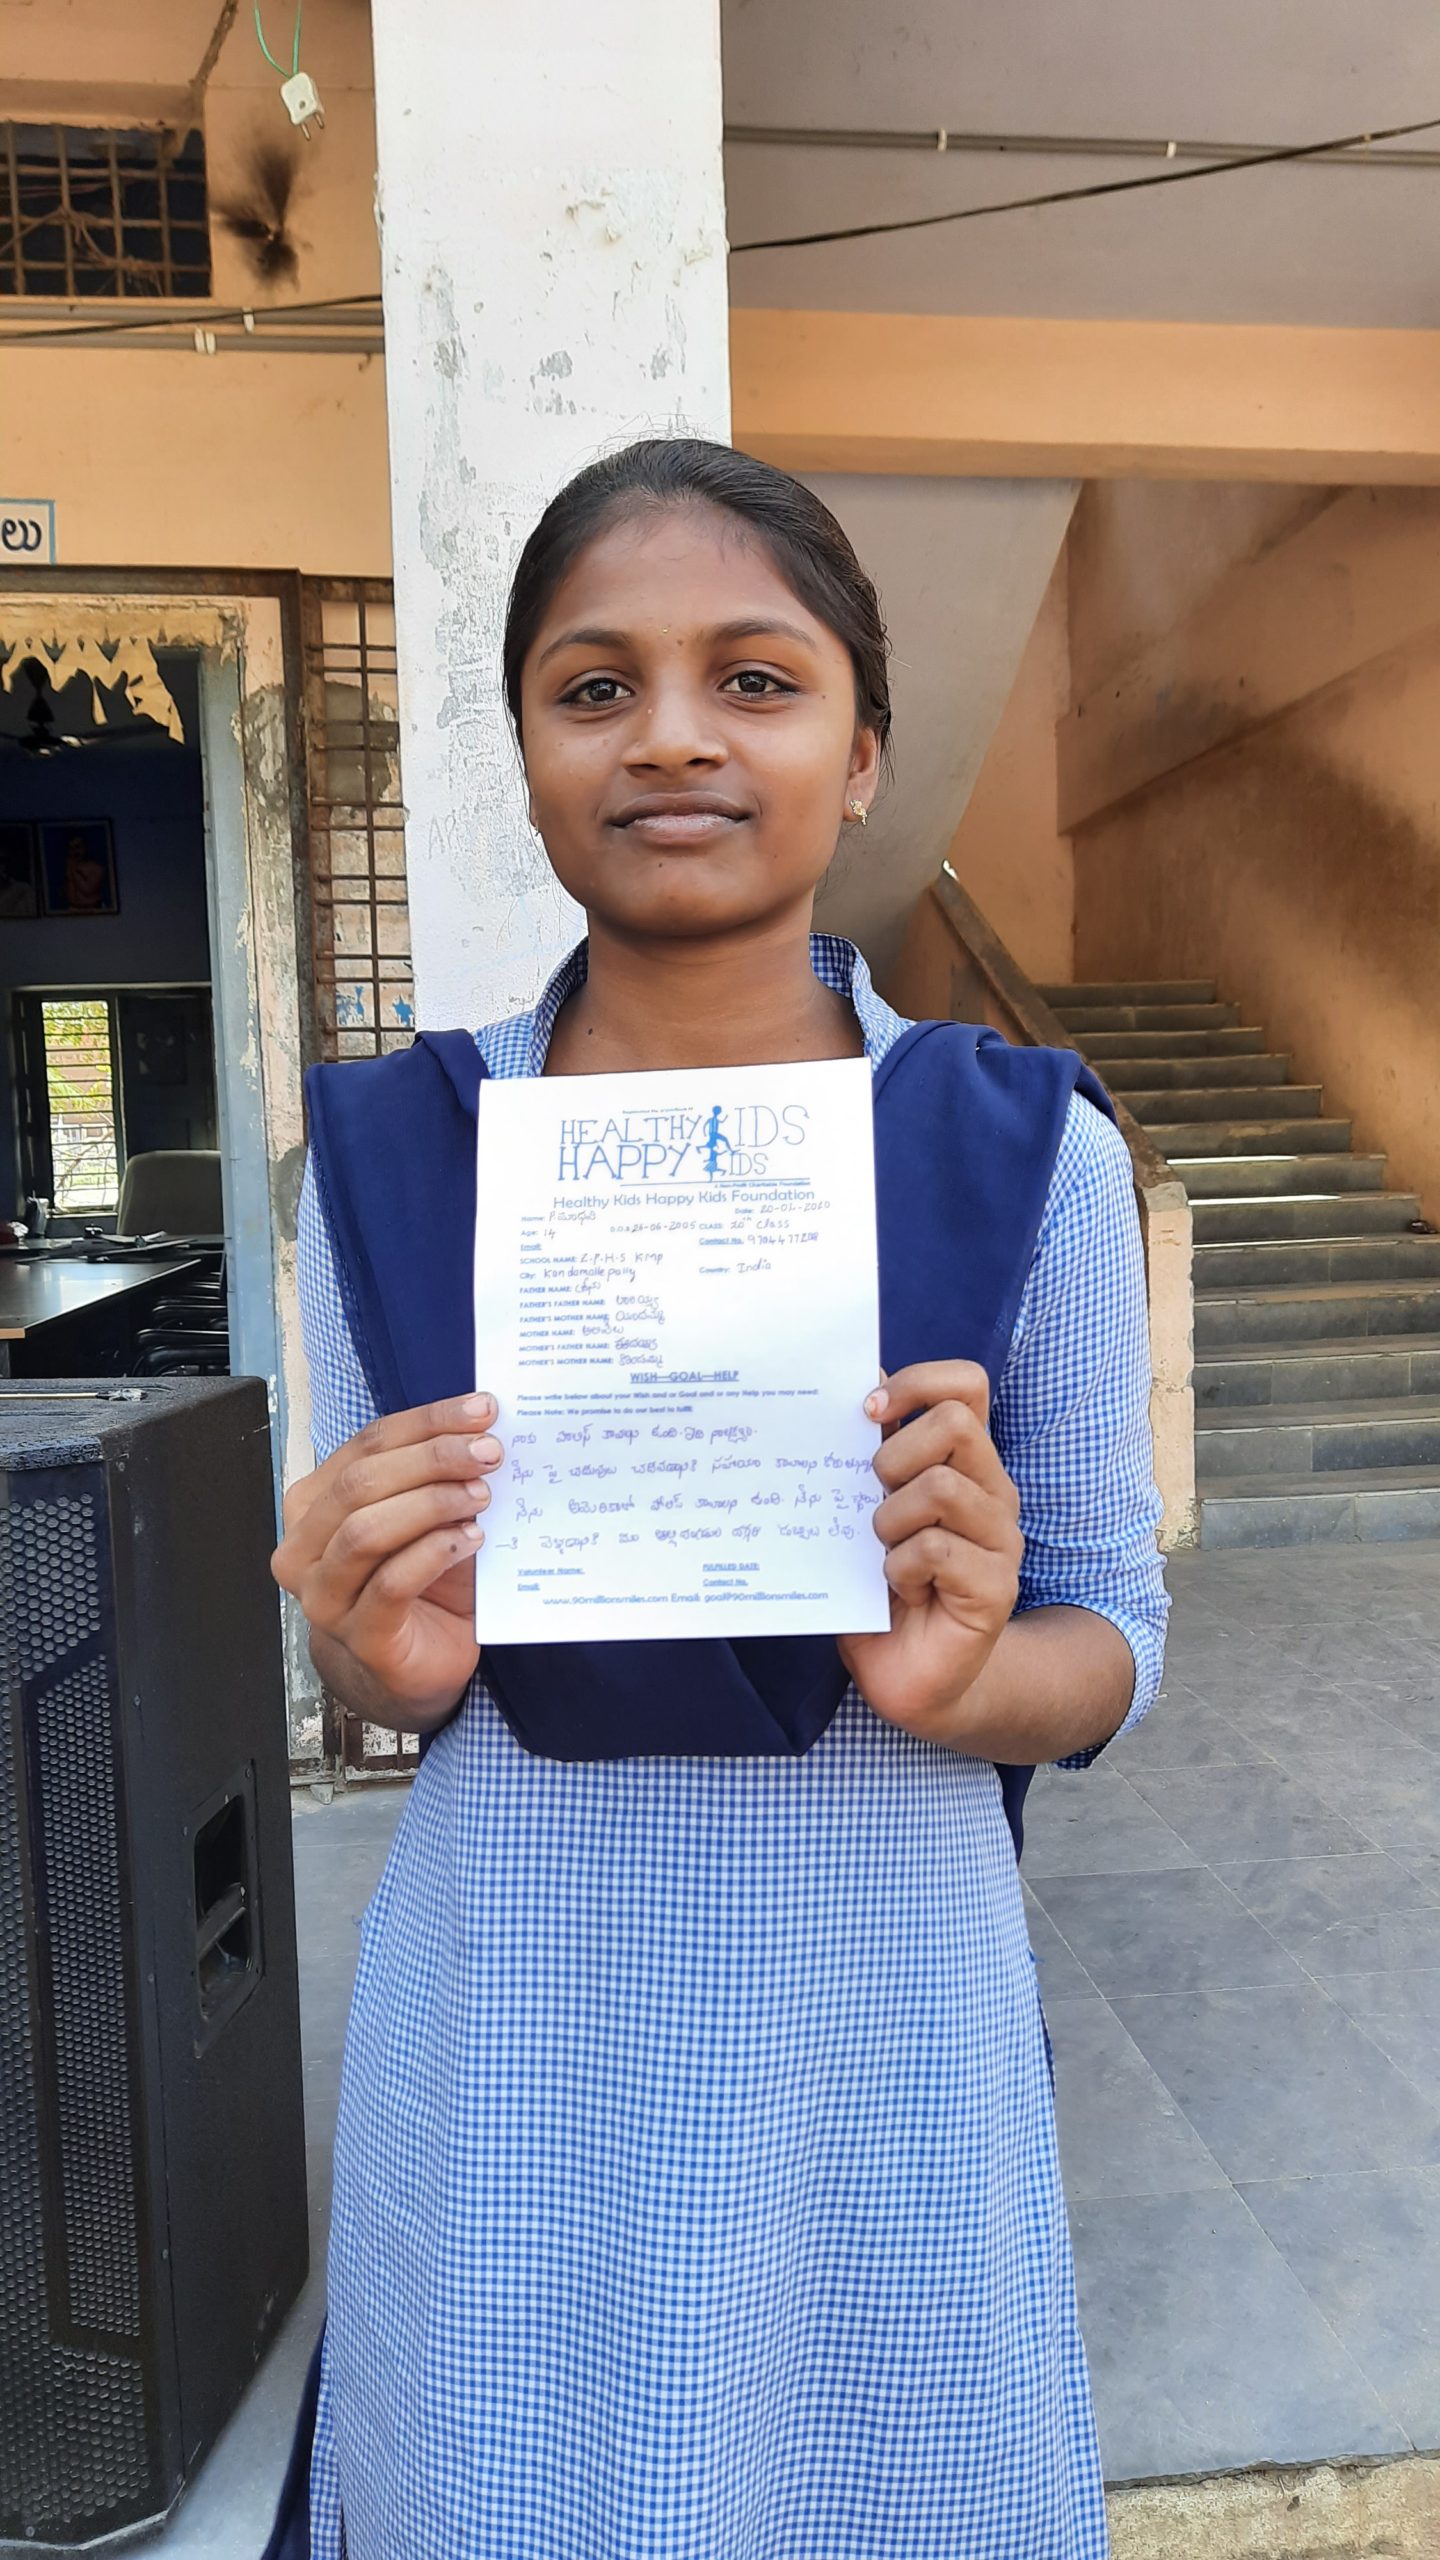 లు
HEALTHY KIDS
HAPPY KIDS
A Non-Profit Charitable Foundation
Healthy Kids Happy Kids Foundation
Name: P. మాధురి Date: 20-01-2020
Age: 14 D.O.B 26-06-2005 CLASS: 10th class
Email: Contact No.
SCHOOL NAME: Z.P.H.S KMP
City: Kondamallepally Country: India
FATHER NAME: శ్రీను
FATHER'S FATHER NAME:
FATHER'S MOTHER NAME:
MOTHER NAME:
MOTHER'S FATHER NAME:
MOTHER'S MOTHER NAME:
WISH—GOAL—HELP
Please write below about your Wish and or Goal and or any Help you may need:
Please Note: We promise to do our best to fulfill:
నాకు పోలీస్ కావాలని ఉంది. ఇది నా లక్ష్యం.
నేను పై చదువులు చదవడానికి సహాయం కావాలని కోరుతున్నా
నేను అమెరికాలో పోలీస్ కావాలని ఉంది. నేను పై స్థాయి
—కి వెళ్ళడానికి మా తల్లిదండ్రుల దగ్గర డబ్బులు లేవు.
Volunteer Name: FULFILLED DATE:
Email: Contact No.
www.90millionsmiles.com Email: goal@90millionsmiles.com